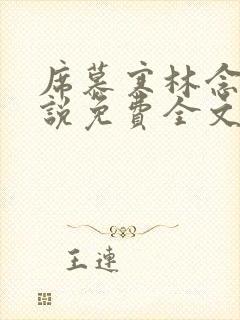 席慕寒林念
說免費全文
王連